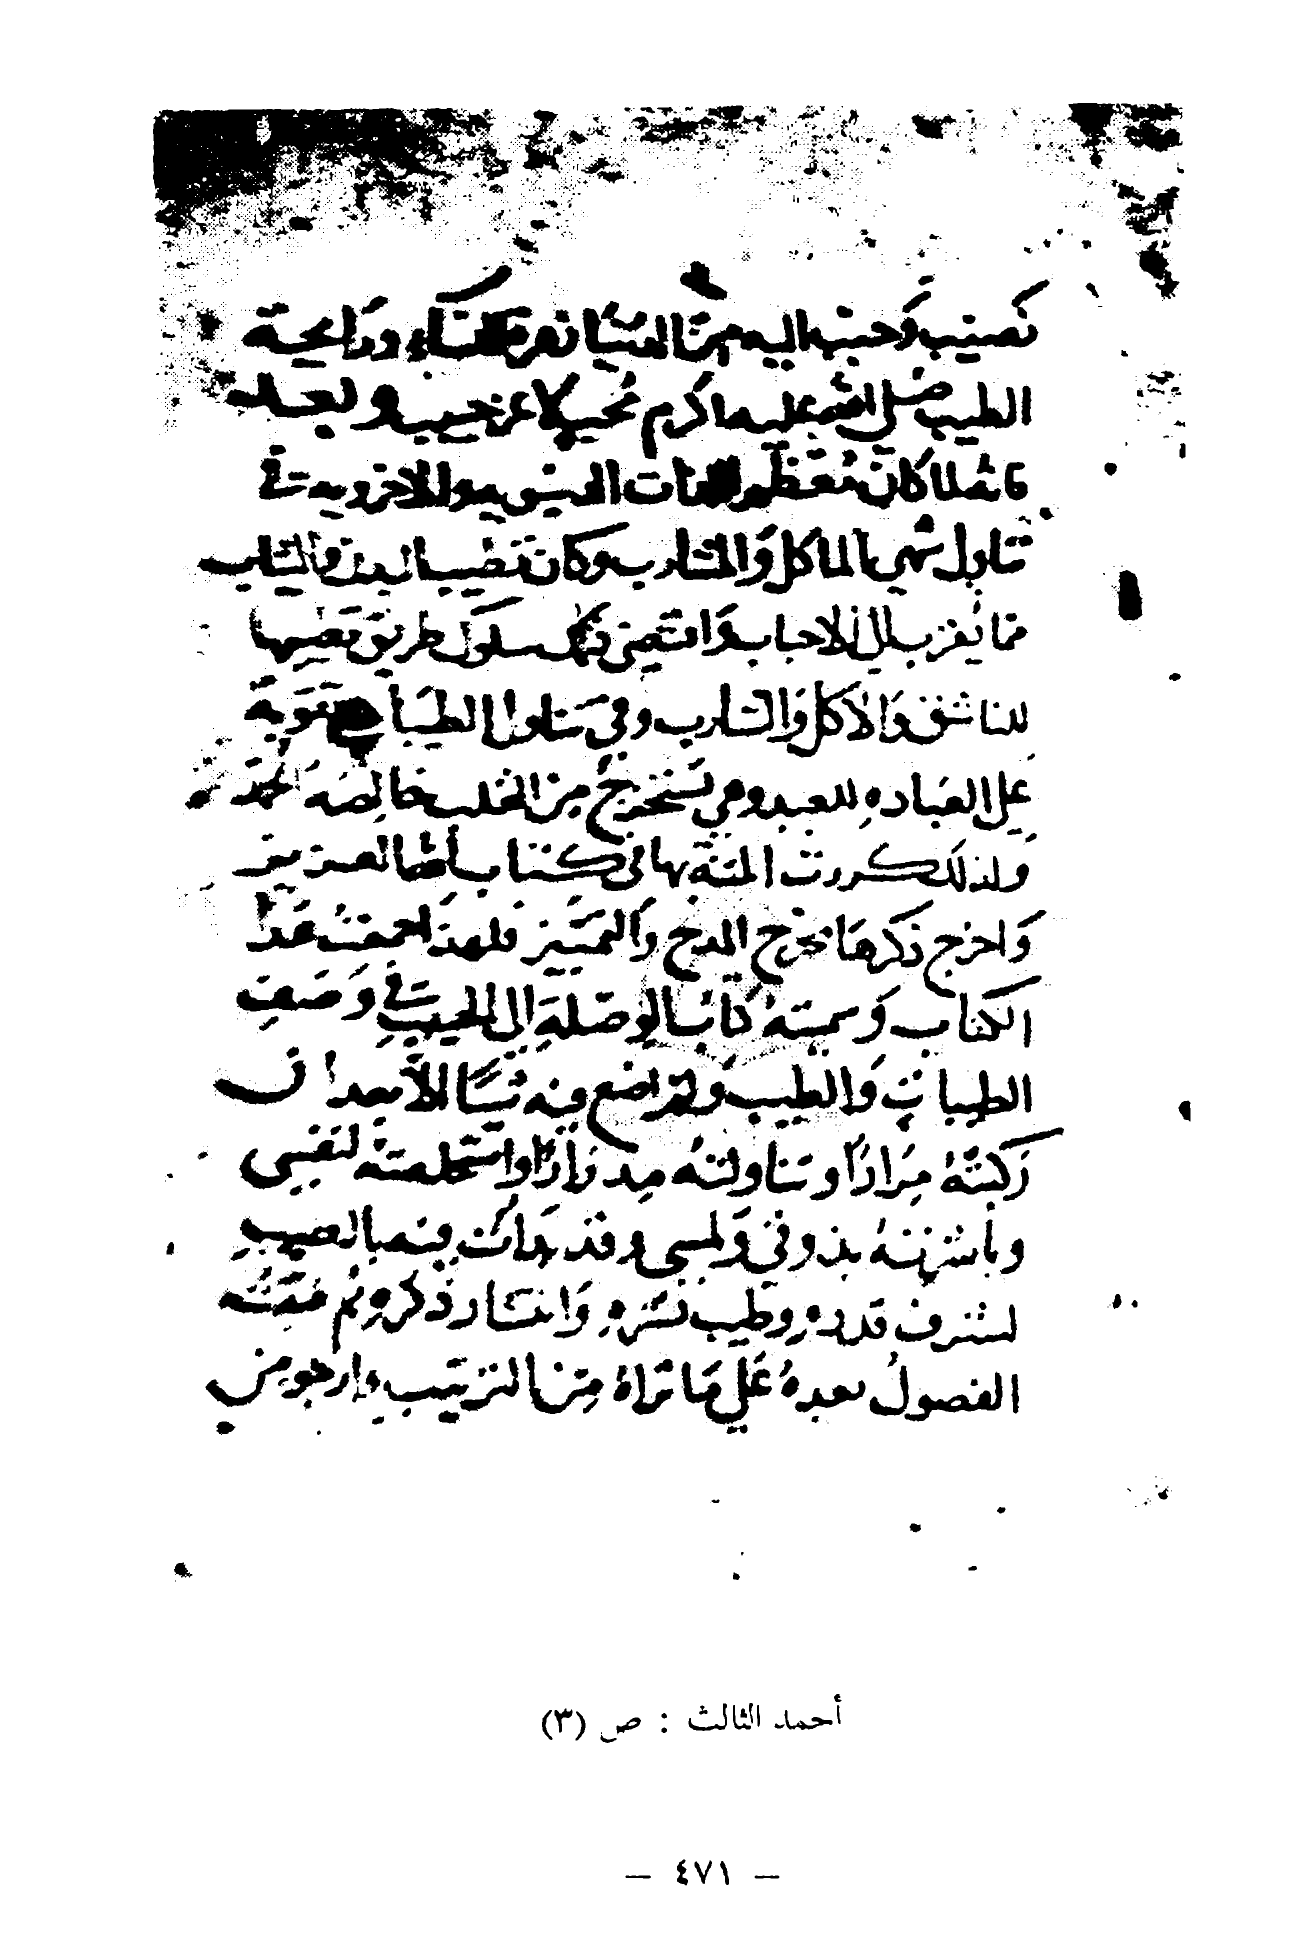 نصيب وحبب اليه من الدنيا النساء ورائحة
الطيب صلى الله عليه ما كرم محب لا عن حبيب وبعد
فانه لما كان معظم اللذات الدنيوية والاخروية في
تناول شهي الماكل والمشارب وكان نصيب البدن والثياب
مما يقرب الى الاحباب واقتضى ذلك سلوك طريق تعبيها
للناشق والاكل والشارب وفي تناول الطيبات تقوية
على العباده للعبد وهي تستخرج من القلب خالصة الحمد
ولذلك كررت المنة بها في كتاب الله العزيز
واخرج ذكرها مخرج المدح والتمييز فلهذا جمعت هذا
الكتاب وسميته كتاب الوصلة الى الحبيب في وصف
الطيبات والطيب ولم اضع فيه شيئا الا بعد ان
ركبته مرارا وتناولته مدرارا واستخلصته لنفسي
وباشرته بذوقي ولمسي وقد بدات فيه بالطيب
لشرف قدره وطيب نشره وانتشار ذكره ثم صنفت
الفصول بعده على ما تراه من الترتيب وارجو من
أحمد الثالث : ص (٣)
— ٤٧١ —